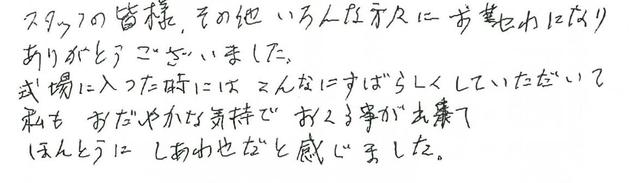 スタッフの皆様、その他いろんな方々にお世わになり
ありがとうございました。
式場に入った時にはこんなにすばらしくしていただいて
私もおだやかな気持でおくる事が出来て
ほんとうにしあわせだと感じました。